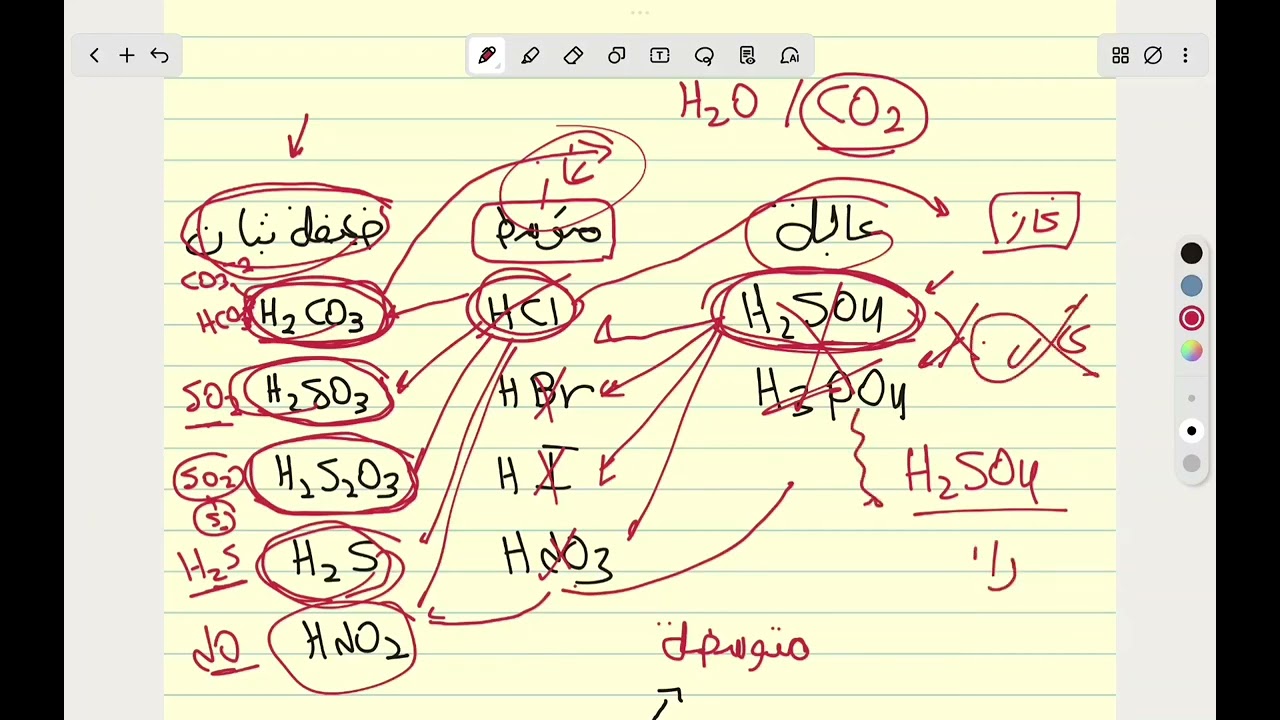 H2O / CO2
عالى
متوسط
غاز
CO3-2
HCO3
H2CO3
HCl
H2SO4
SO2
H2SO3
HBr
H3PO4
SO2
S
H2S2O3
HI
H2SO4
H2S
H2S
HNO3
NO
HNO2
متوسطة